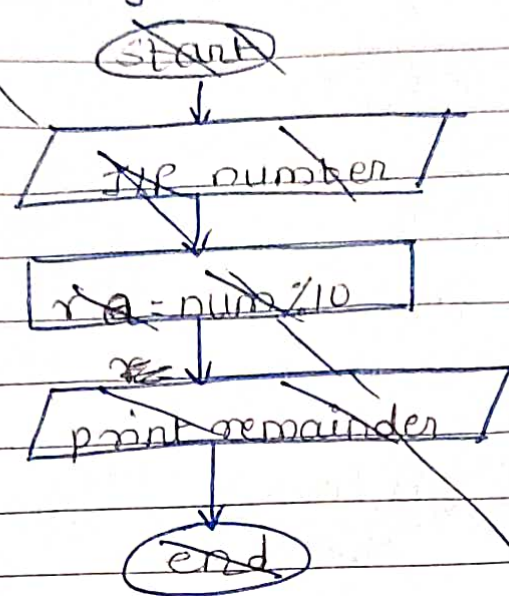 start
I/P number
r a = num % 10
r =
print remainder
end